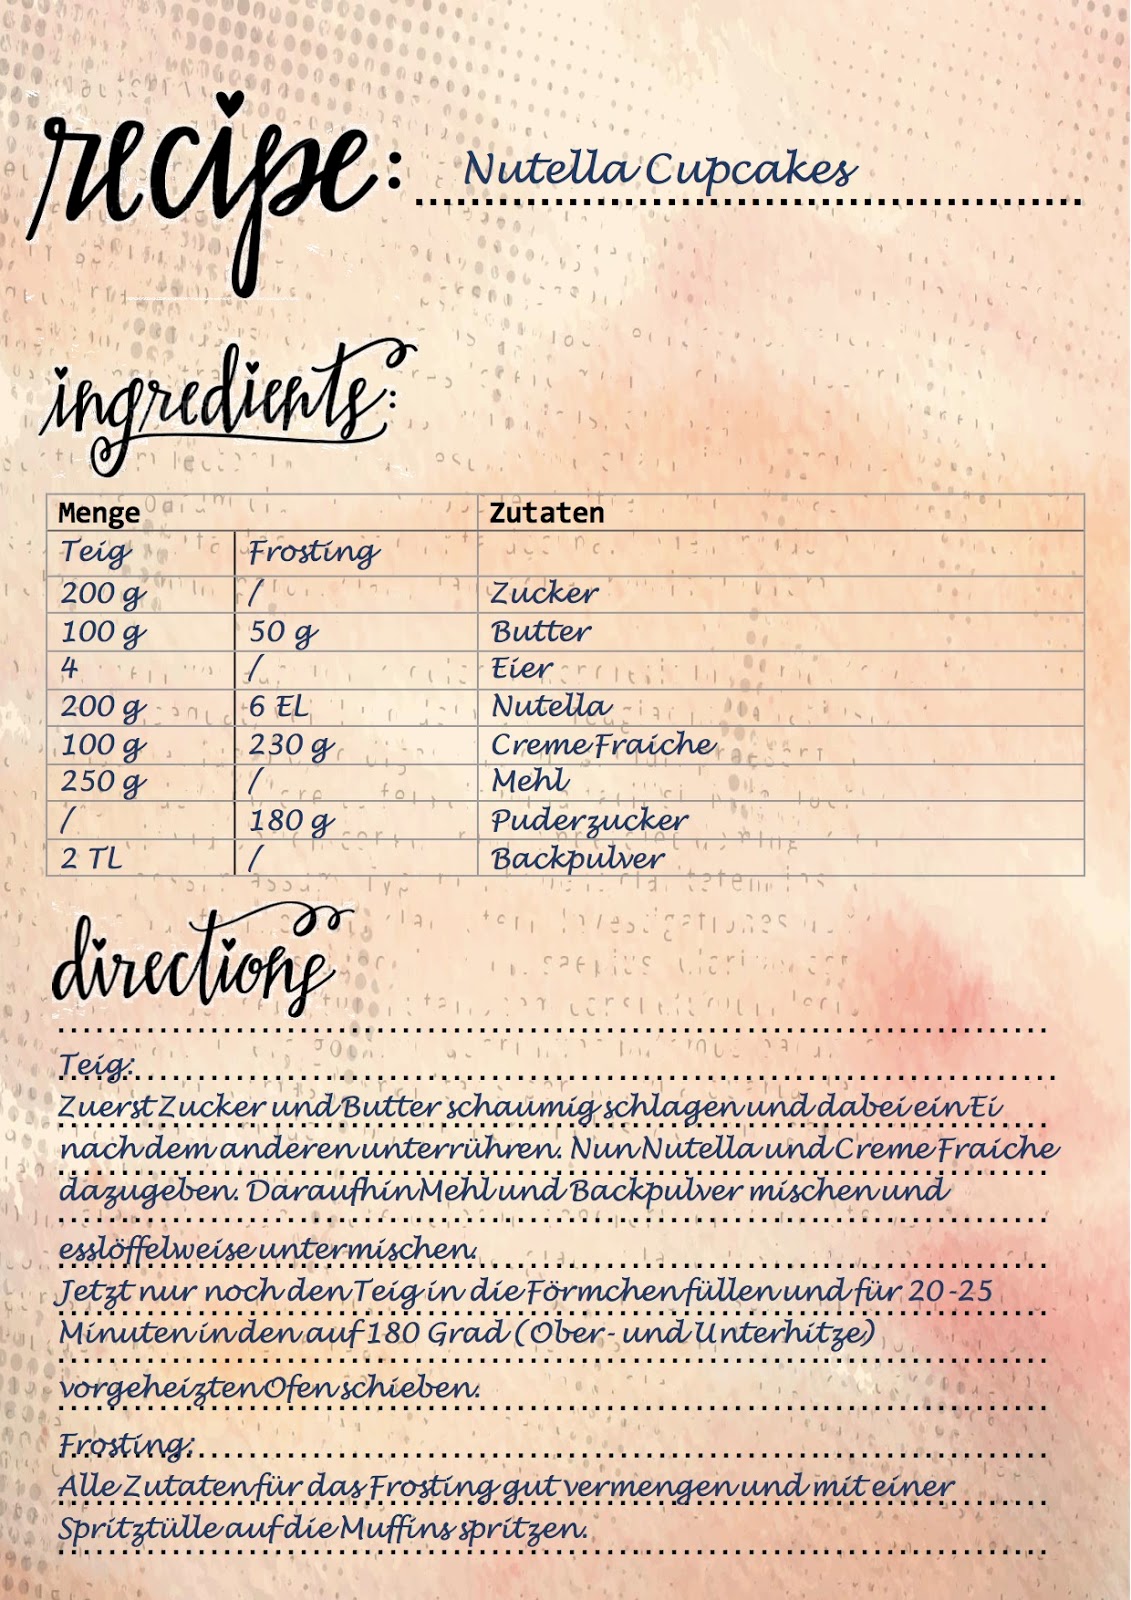 recipe: Nutella Cupcakes
ingredients:
Menge Zutaten
Teig Frosting
200 g / Zucker
100 g 50 g Butter
4 / Eier
200 g 6 EL Nutella
100 g 230 g Creme Fraiche
250 g / Mehl
/ 180 g Puderzucker
2 TL / Backpulver
directions
Teig:
Zuerst Zucker und Butter schaumig schlagen und dabei ein Ei
nach dem anderen unterrühren. Nun Nutella und Creme Fraiche
dazugeben. Daraufhin Mehl und Backpulver mischen und
esslöffelweise untermischen.
Jetzt nur noch den Teig in die Förmchen füllen und für 20-25
Minuten in den auf 180 Grad (Ober- und Unterhitze)
vorgeheizten Ofen schieben.
Frosting:
Alle Zutaten für das Frosting gut vermengen und mit einer
Spritztülle auf die Muffins spritzen.